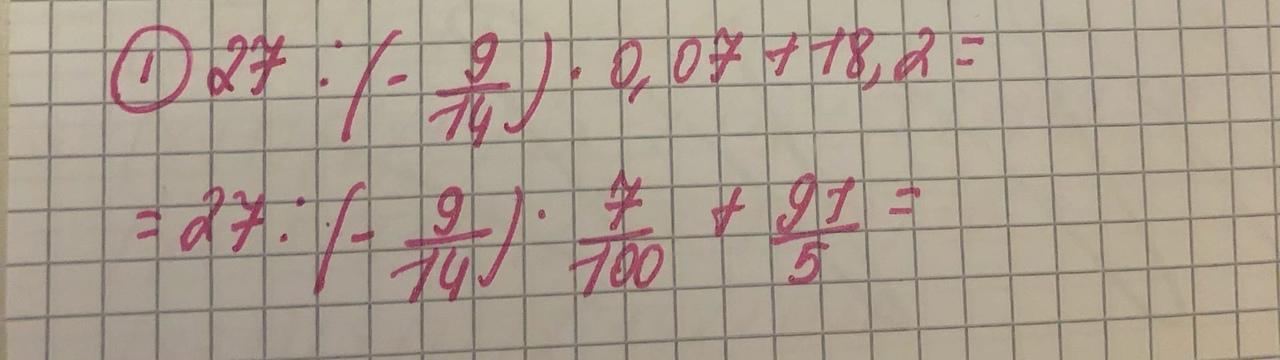 ① 27 : (- 9/14) · 0,07 + 18,2 =
= 27 : (- 9/14) · 7/100 + 91/5 =